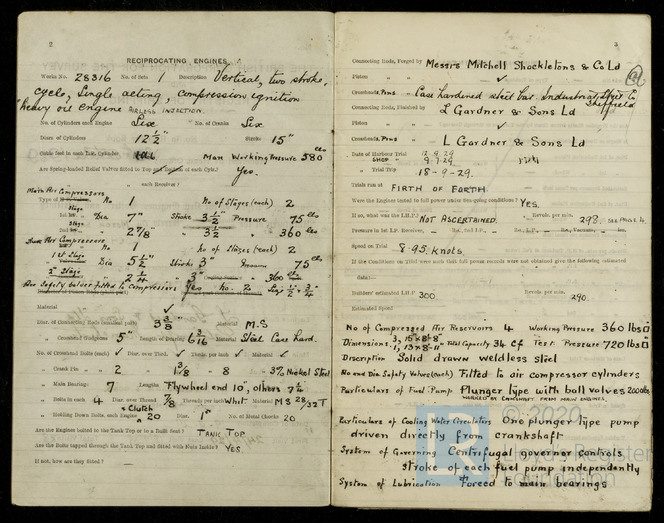 2
RECIPROCATING ENGINES.
Works No. 28316 No. of Sets 1 Description Vertical, two stroke,
cycle, single acting, compression ignition
Heavy oil engine AIRLESS INJECTION.
No. of Cylinders each Engine Six No. of Cranks Six
Diars. of Cylinders 12½" Stroke 15"
Cubic feet in each L.P. Cylinder Max Working Pressure 580 lbs
Are Spring-loaded Relief Valves fitted to Top and Bottom of each Cylr.? Yes.
" " each Receiver?
Main Air Compressors
Type of No 1 No of Stages (each) 2
1st Stage Dia 7" Stroke 3½" Pressure 75 lbs
2nd Stage " 2⅞ " 3½" " 360 lbs
Aux Air Compressors
No 1 No of Stages (each) 2
1st Stage Dia 5½" Stroke 3" Pressure 75 lbs
2nd Stage " 2¼" " 3" " 360 lbs
Are Safety valves fitted to Compressors Yes No. 2 Size ½" × ¾"
Material ✓
Diar. of Connecting Rods (smallest part) 3⅜" Material M.S
" Crosshead Gudgeons 5" Length of Bearing 6 3/16 Material Steel Case hard.
No. of Crosshead Bolts (each) ✓ Diar. over Thrd. ✓ Thrds. per inch ✓ Material ✓
" Crank Pin " 2 " 1⅜ " 8 " 3% Nickel Steel
" Main Bearings 7 Lengths Flywheel end 10", others 7¼
" Bolts in each 4 Diar. over Thread 7/8 Threads per inch Whit Material MS 28/32T
" Holding Down Bolts, each Engine & Clutch 20 Diar. 1" No. of Metal Chocks 20
Are the Engines bolted to the Tank Top or to a Built Seat? TANK TOP
Are the Bolts tapped through the Tank Top and fitted with Nuts Inside? YES
If not, how are they fitted? —
3
Connecting Rods, Forged by Messrs Mitchell Shackletons & Co Ld
Piston " " ✓
Crossheads, Pins " Case hardened steel bar. Industrial Steel Co
Sheffield
Connecting Rods, Finished by L Gardner & Sons Ld
Piston " " ✓
Crossheads, Pins " L Gardner & Sons Ld
Date of Harbour Trial 12.9.29
SHOP " 9.7.29
" Trial Trip 18-9-29.
Trials run at FIRTH OF FORTH
Were the Engines tested to full power under Sea-going conditions? YES.
If so, what was the I.H.P.? NOT ASCERTAINED. Revols. per min. 298. SEE PAGE 4
Pressure in 1st I.P. Receiver, lbs., 2nd I.P., lbs., L.P., lbs., Vacuum, ins.
Speed on Trial 8.95 knots.
If the Conditions on Trial were such that full power records were not obtained give the following estimated
data:—
Builders' estimated I.H.P 300. Revols. per min. 290.
Estimated Speed
No of Compressed Air Reservoirs 4 Working Pressure 360 lbs □
Dimensions 3, 15"×8'-8" 1, 13"×8'-11" Total Capacity 34 Cf Test Pressure 720 lbs □
Discription Solid drawn weldless steel
No and Dia Safety Valves (each) Fitted to air compressor cylinders
Particulars of Fuel Pump Plunger type with ball valves 2000 lbs
WORKED BY CAMSHAFT FROM MAIN ENGINES
Particulars of Cooling Water Circulators One plunger type pump
driven directly from crankshaft
System of Governing Centrifugal governor controls
stroke of each fuel pump independently
System of Lubrication Forced to main bearings
© 2020
Lloyd's Register
Foundation